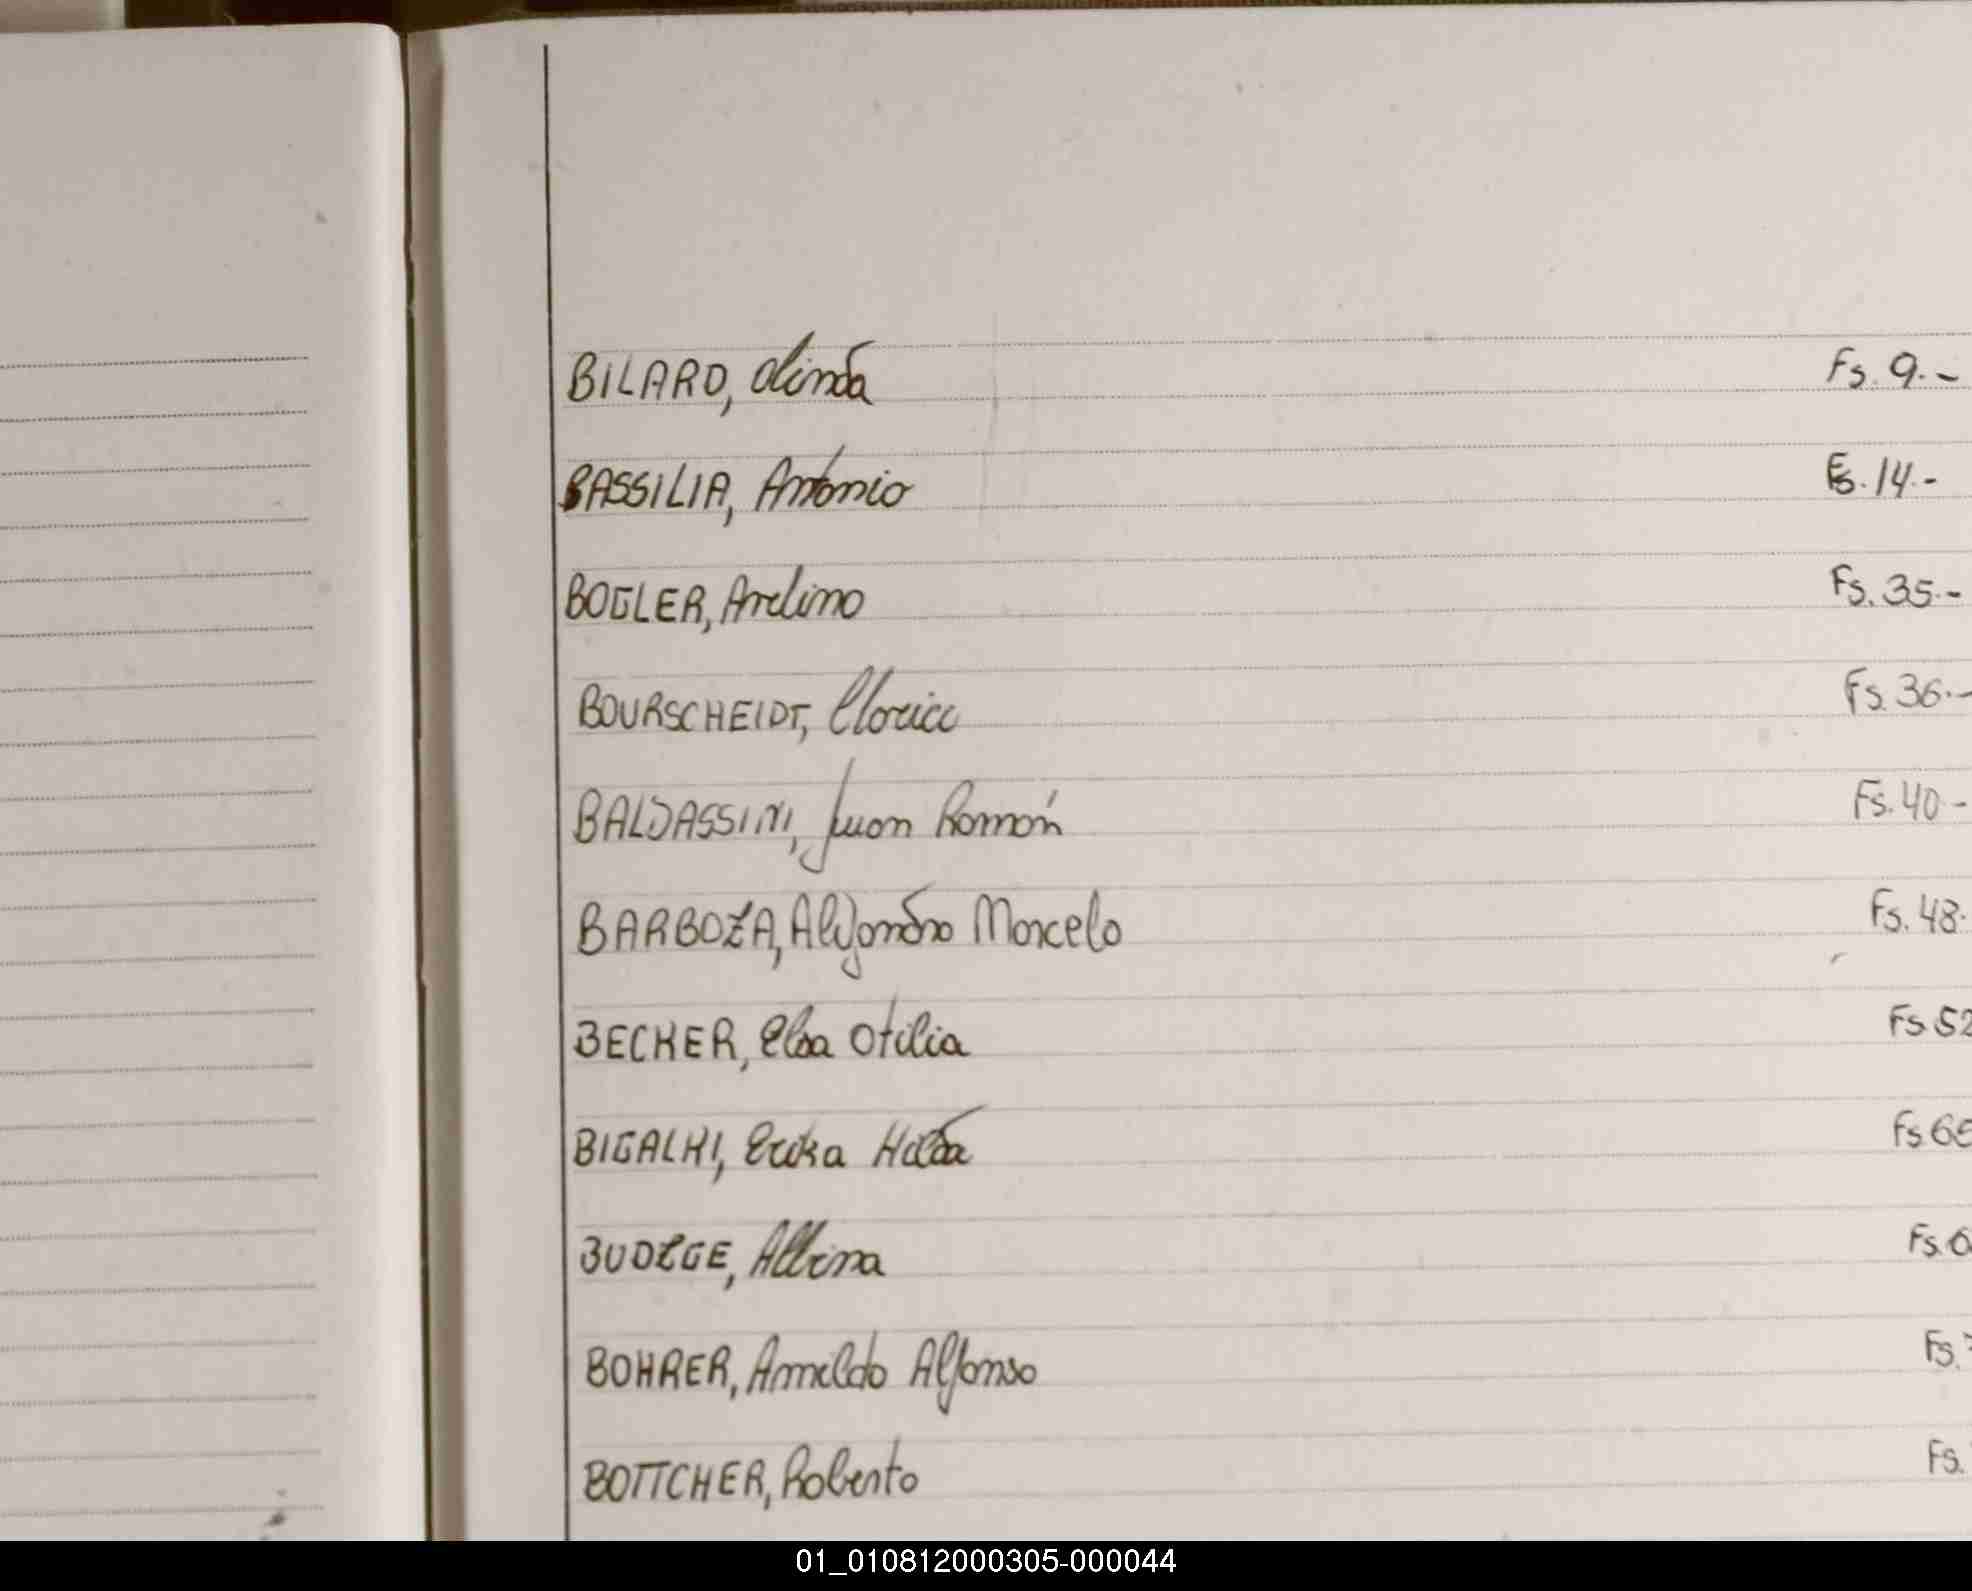 BILARD, Olinda Fs. 9.-
BASSILIA, Antonio Fs. 14.-
BOGLER, Avelino Fs. 35.-
BOURSCHEIDT, Fs. 36.-
BALDASSINI, Juan Román Fs. 40.-
BARBOZA, Alejandro Marcelo Fs. 48.
BECKER, Elsa Otilia Fs 52
BIGALKI, Erika Hilda Fs 6
BUDZGE, Albina Fs. 6
BOHRER, Arneldo Alfonso Fs.
BOTTCHER, Roberto Fs.
01_010812000305-000044